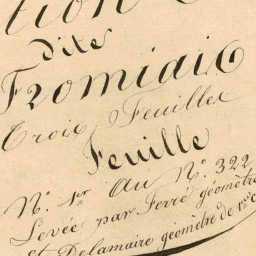 tion
dite
Fromiaic
Trois Feuilles
Feuille
N.° 1.er au N.° 322
Levée par Ferré géomètre
et Delamaire géomètre de 1ere c